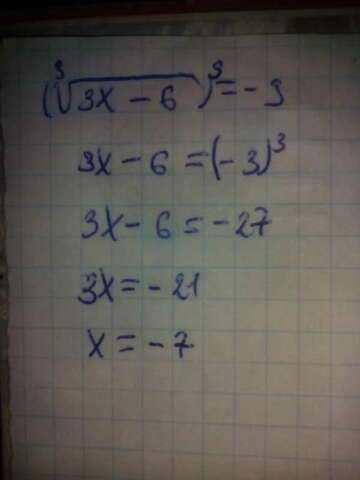 (∛(3x − 6))³ = −3
3x − 6 = (−3)³
3x − 6 = −27
3x = −21
x = −7